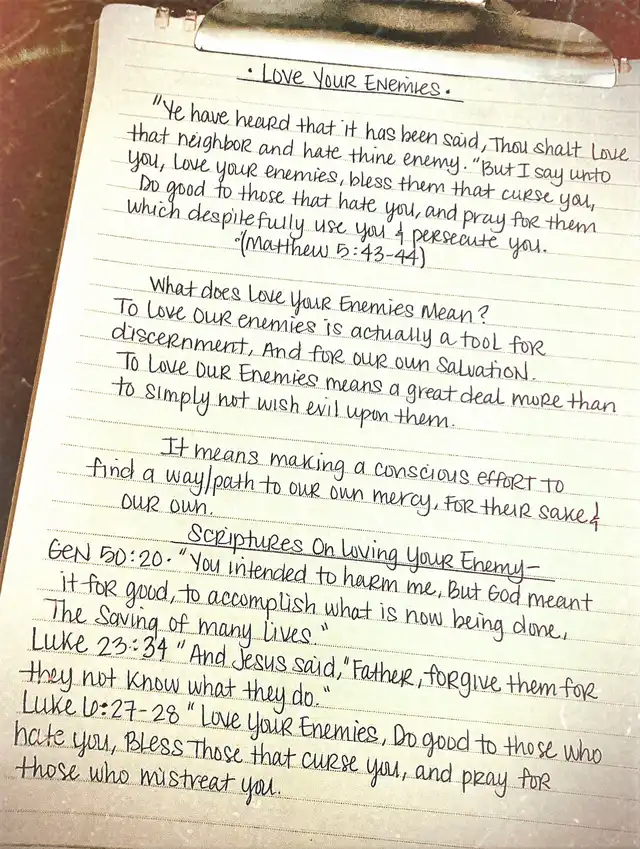 · Love Your Enemies ·
"Ye have heard that it has been said, Thou shalt Love
that neighbor and hate thine enemy. "But I say unto
you, Love your enemies, bless them that curse you,
Do good to those that hate you, and pray for them
which despitefully use you & persecute you.
·(Matthew 5:43-44)
What does Love Your Enemies Mean?
To Love our enemies is actually a tool for
discernment, And for our own Salvation.
To Love Our Enemies means a great deal more than
to simply not wish evil upon them.
It means making a conscious effort to
find a way/path to our own mercy, for their sake &
our own.
Scriptures On Loving Your Enemy-
Gen 50:20. "You intended to harm me, But God meant
it for good, to accomplish what is now being done,
The Saving of many Lives."
Luke 23:34 "And Jesus said, "Father, forgive them for
they not know what they do."
Luke 6:27-28 "Love Your Enemies, Do good to those who
hate you, Bless Those that curse you, and pray for
those who mistreat you.